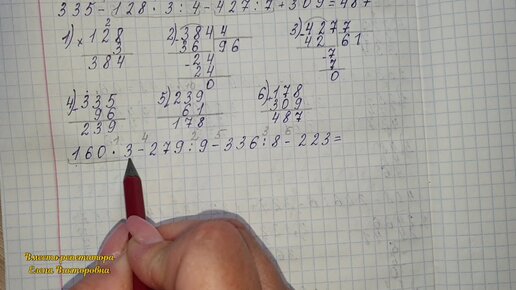 335-128·3:4-427:7+309=487
1) ×128 2) -384|4 3) -427|7
3 36 96 42 61
384 -24 -7
24 7
0 0
4) -335 5) -239 6) +178
96 61 309
239 178 487
1 4 2 5 3 6
160·3-279:9-336:8-223=
Вместо репетитора
Елена Викторовна